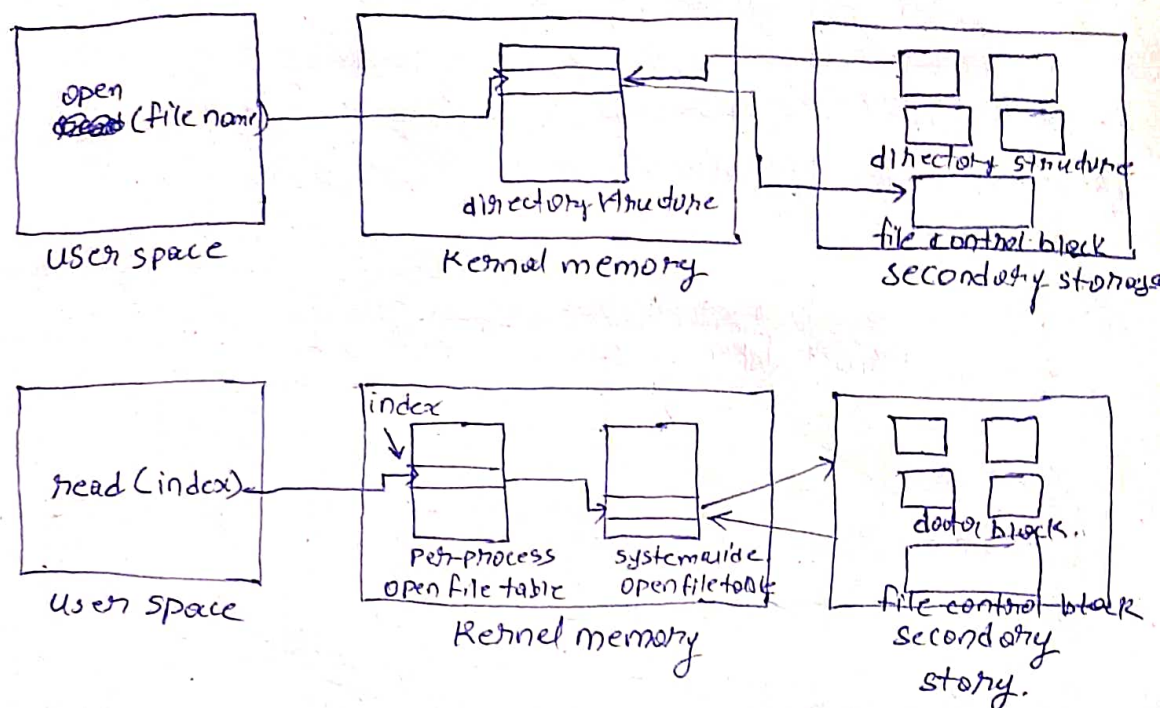 open
(file name)
directory structure
directory structure
file control block
user space
Kernal memory
secondary storage
index
read (index)
data block.
per-process
open file table
systemwide
open file table
file control block
user space
Kernel memory
secondary
story.